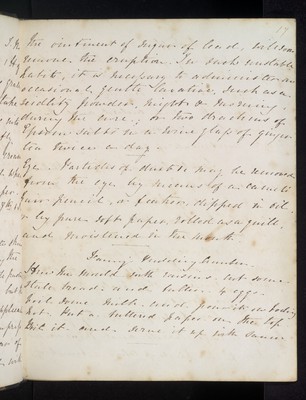 The ointment of sugar of lead, will soon
remove the eruption. In such
habits, it is necessary to administer an
occasional gentle laxative, such as a
seidlitz powder, night & morning,
during the cure; or two drachms of
Epsom salts in a wine glass of ginger
tea twice a day.
Eye. Particles of dust &c may be removed
from the eye by means of a camel's
hair pencil, or feather, dipped in oil,
or by pure soft paper, rolled as a quill,
and moistened in the mouth.
Fanny's Pudding
the mould with raisins cut some
stale bread and butter 4 eggs.
boil some milk and pour it on boiling
hot. Put a buttered paper on the top
boil it and serve it up with sauce